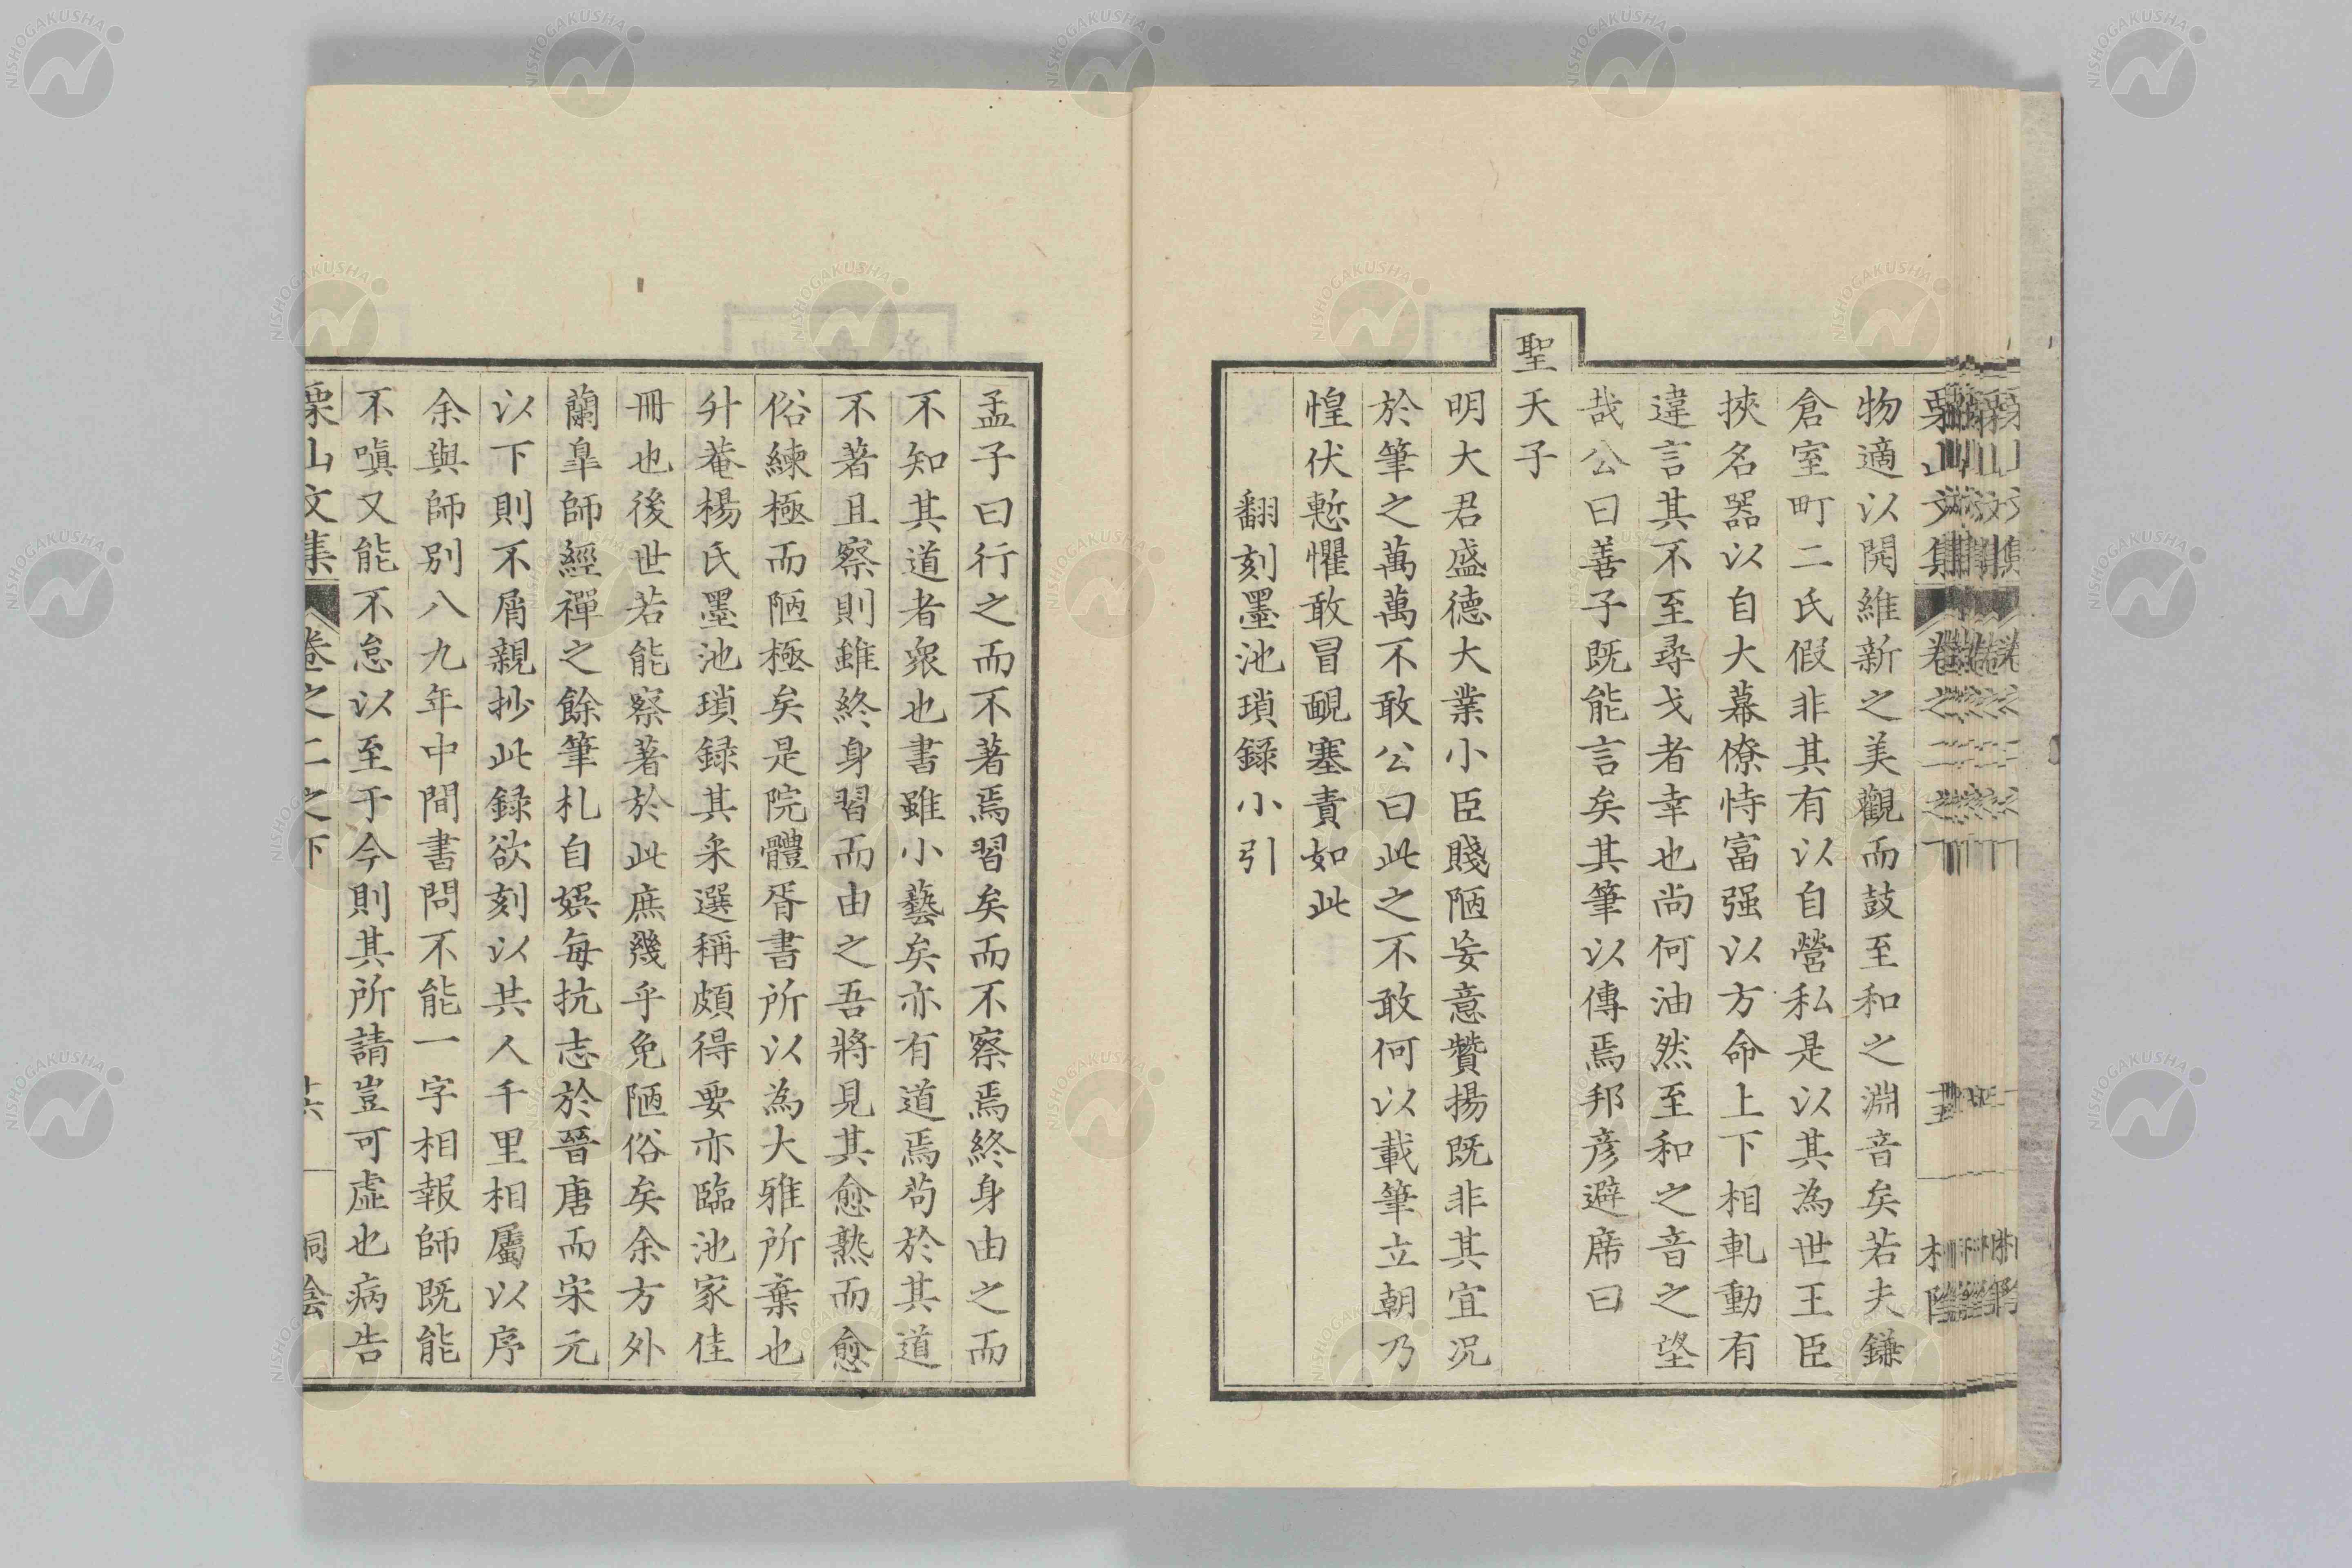 物適以開維新之美觀而鼓至和之淵音矣若夫鎌
倉室町二氏假非其有以自營私是以其為世王臣
挾名器以自大幕僚恃富强以方命上下相軋動有
違言其不至尋戈者幸也尚何油然至和之音之望
哉公曰善子既能言矣其筆以傳焉邦彦避席曰
聖天子
明大君盛德大業小臣賤陋妄意贊揚既非其宜况
於筆之萬萬不敢公曰此之不敢何以載筆立朝乃
惶伏慙懼敢冒靦塞責如此
翻刻墨池瑣録小引
孟子曰行之而不著焉習矣而不察焉終身由之而
不知其道者衆也書雖小藝矣亦有道焉苟於其道
不著且察則雖終身習而由之吾將見其愈熟而愈
俗練極而陋極矣是院體胥書所以為大雅所棄也
升菴楊氏墨池瑣録其采選稱頗得要亦臨池家佳
冊也後世若能察著於此庶幾乎免陋俗矣余方外
蘭臯師經禪之餘筆札自娯每抗志於晉唐而宋元
以下則不屑親抄此録欲刻以共人千里相屬以序
余與師別八九年中間書問不能一字相報師既能
不嗔又能不怠以至于今則其所請豈可虛也病告
栗山文集 卷之二之下
NISHOGAKUSHA